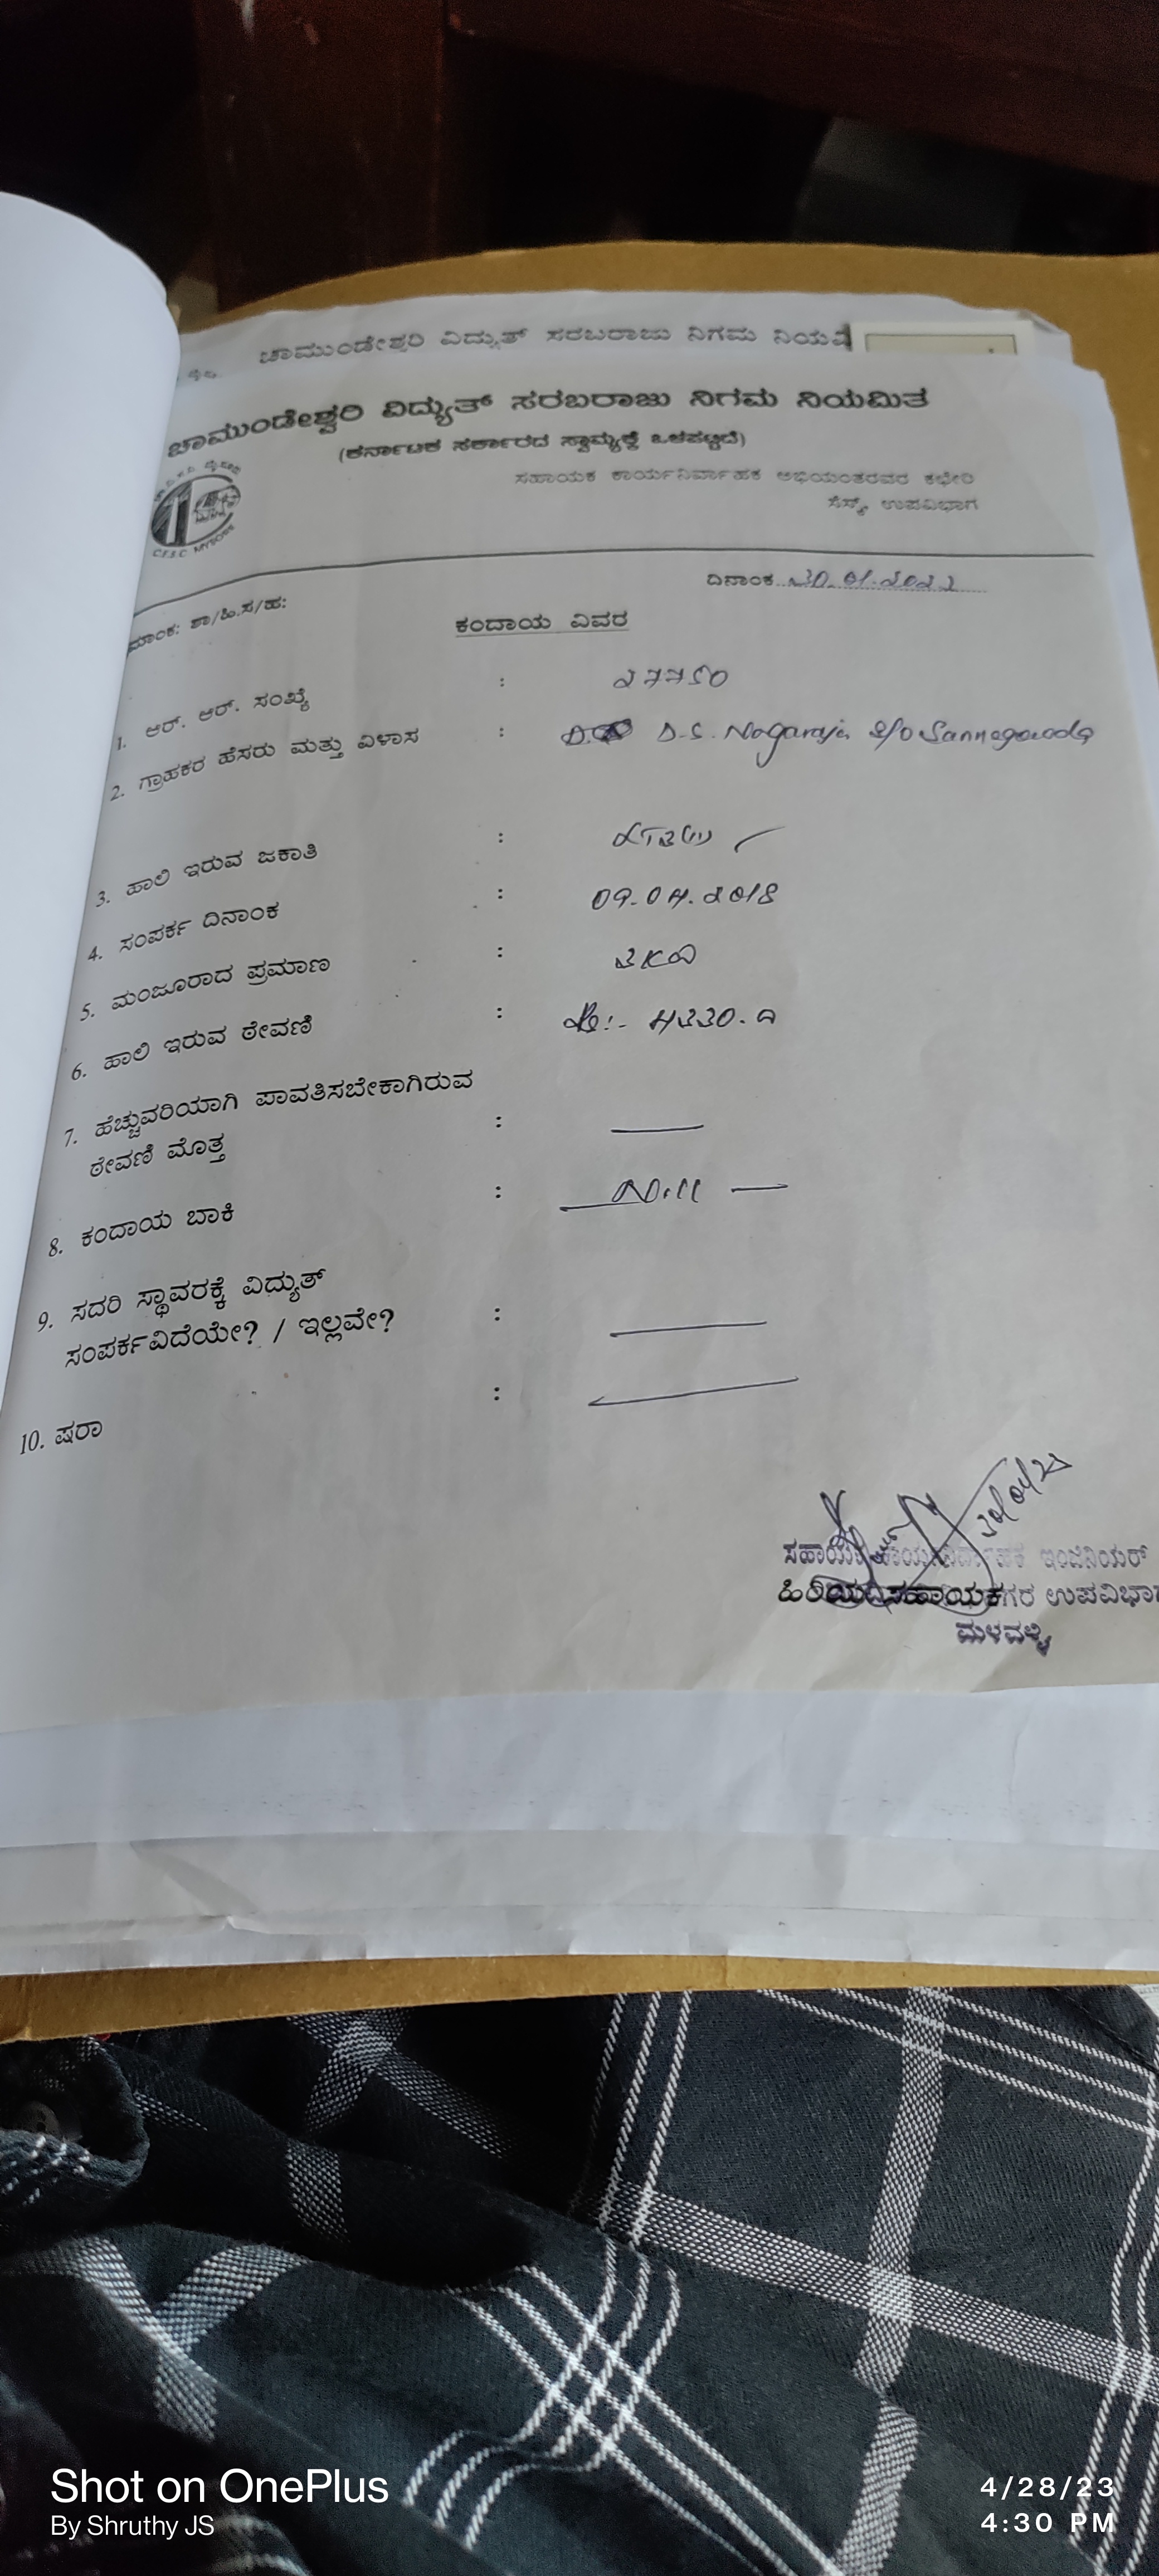 ಚಾಮುಂಡೇಶ್ವರಿ ವಿದ್ಯುತ್ ಸರಬರಾಜು ನಿಗಮ ನಿಯಮಿ
ಚಾಮುಂಡೇಶ್ವರಿ ವಿದ್ಯುತ್ ಸರಬರಾಜು ನಿಗಮ ನಿಯಮಿತ
(ಕರ್ನಾಟಕ ಸರ್ಕಾರದ ಸ್ವಾಮ್ಯಕ್ಕೆ ಒಳಪಟ್ಟಿದೆ)
ಸಹಾಯಕ ಕಾರ್ಯನಿರ್ವಾಹಕ ಅಭಿಯಂತರವರ ಕಛೇರಿ
ಸೆಸ್ಕ್, ಉಪವಿಭಾಗ
C.E.S.C MYSORE
ದಿನಾಂಕ 30.01.2022
ಮಾಂಕ: ಶಾ/ಹಿ.ಸ/ಹ:
ಕಂದಾಯ ವಿವರ
1. ಆರ್. ಆರ್. ಸಂಖ್ಯೆ : 27750
2. ಗ್ರಾಹಕರ ಹೆಸರು ಮತ್ತು ವಿಳಾಸ : D.S. Nagaraja S/o Sannegowda
3. ಹಾಲಿ ಇರುವ ಜಕಾತಿ :
4. ಸಂಪರ್ಕ ದಿನಾಂಕ : 09.04.2018
5. ಮಂಜೂರಾದ ಪ್ರಮಾಣ : 3KW
6. ಹಾಲಿ ಇರುವ ಠೇವಣಿ : Rs:- 4330.00
7. ಹೆಚ್ಚುವರಿಯಾಗಿ ಪಾವತಿಸಬೇಕಾಗಿರುವ
ಠೇವಣಿ ಮೊತ್ತ : —
8. ಕಂದಾಯ ಬಾಕಿ : — Nill —
9. ಸದರಿ ಸ್ಥಾವರಕ್ಕೆ ವಿದ್ಯುತ್
ಸಂಪರ್ಕವಿದೆಯೇ? / ಇಲ್ಲವೇ? : —
10. ಷರಾ : —
ಇಂಜಿನಿಯರ್
ಹಿರಿಯ ಸಹಾಯಕ ಉಪವಿಭಾಗ
ಮಳವಳ್ಳಿ
Shot on OnePlus
By Shruthy JS
4/28/23
4:30 PM